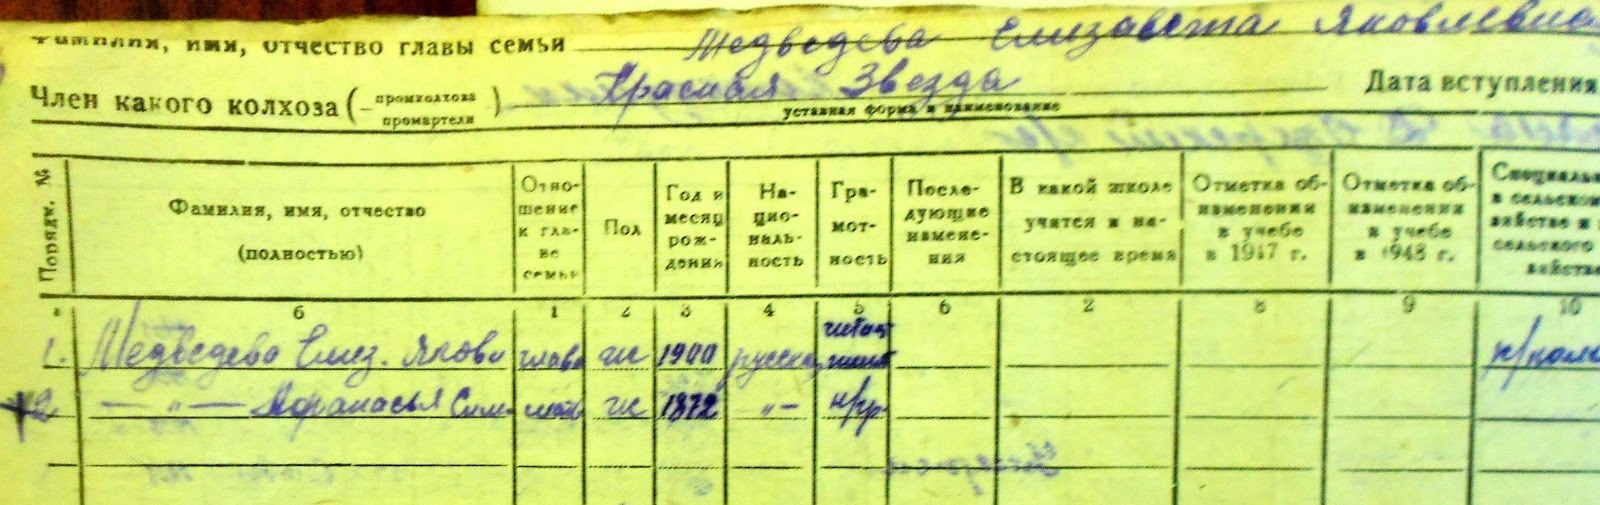 Фамилия, имя, отчество главы семьи Медведева Елизавета Яковлевна
Член какого колхоза (промколхоза промартели) Красная Звезда Дата вступления
уставная форма и наименование
Порядк. №
Фамилия, имя, отчество (полностью)
Отно-
шение
к гла-
ве
семьи
Пол
Год и
месяц
рож-
дения
На-
цио-
наль-
ность
Гра-
мот-
ность
После-
дующие
измене-
ния
В какой школе
учится в на-
стоящее время
Отметка об-
изменении
в учебе
в 1947 г.
Отметка об-
изменении
в учебе
в 1948 г.
Специаль
в сельском
зяйстве и
сельского
зяйстве
6 1 2 3 4 5 6 2 8 9 10
1. Медведева Елиз. Яковл глава ж 1900 русская читает пишет
2 — „ — Афанасья Сим мать ж 1872 „— н/гр